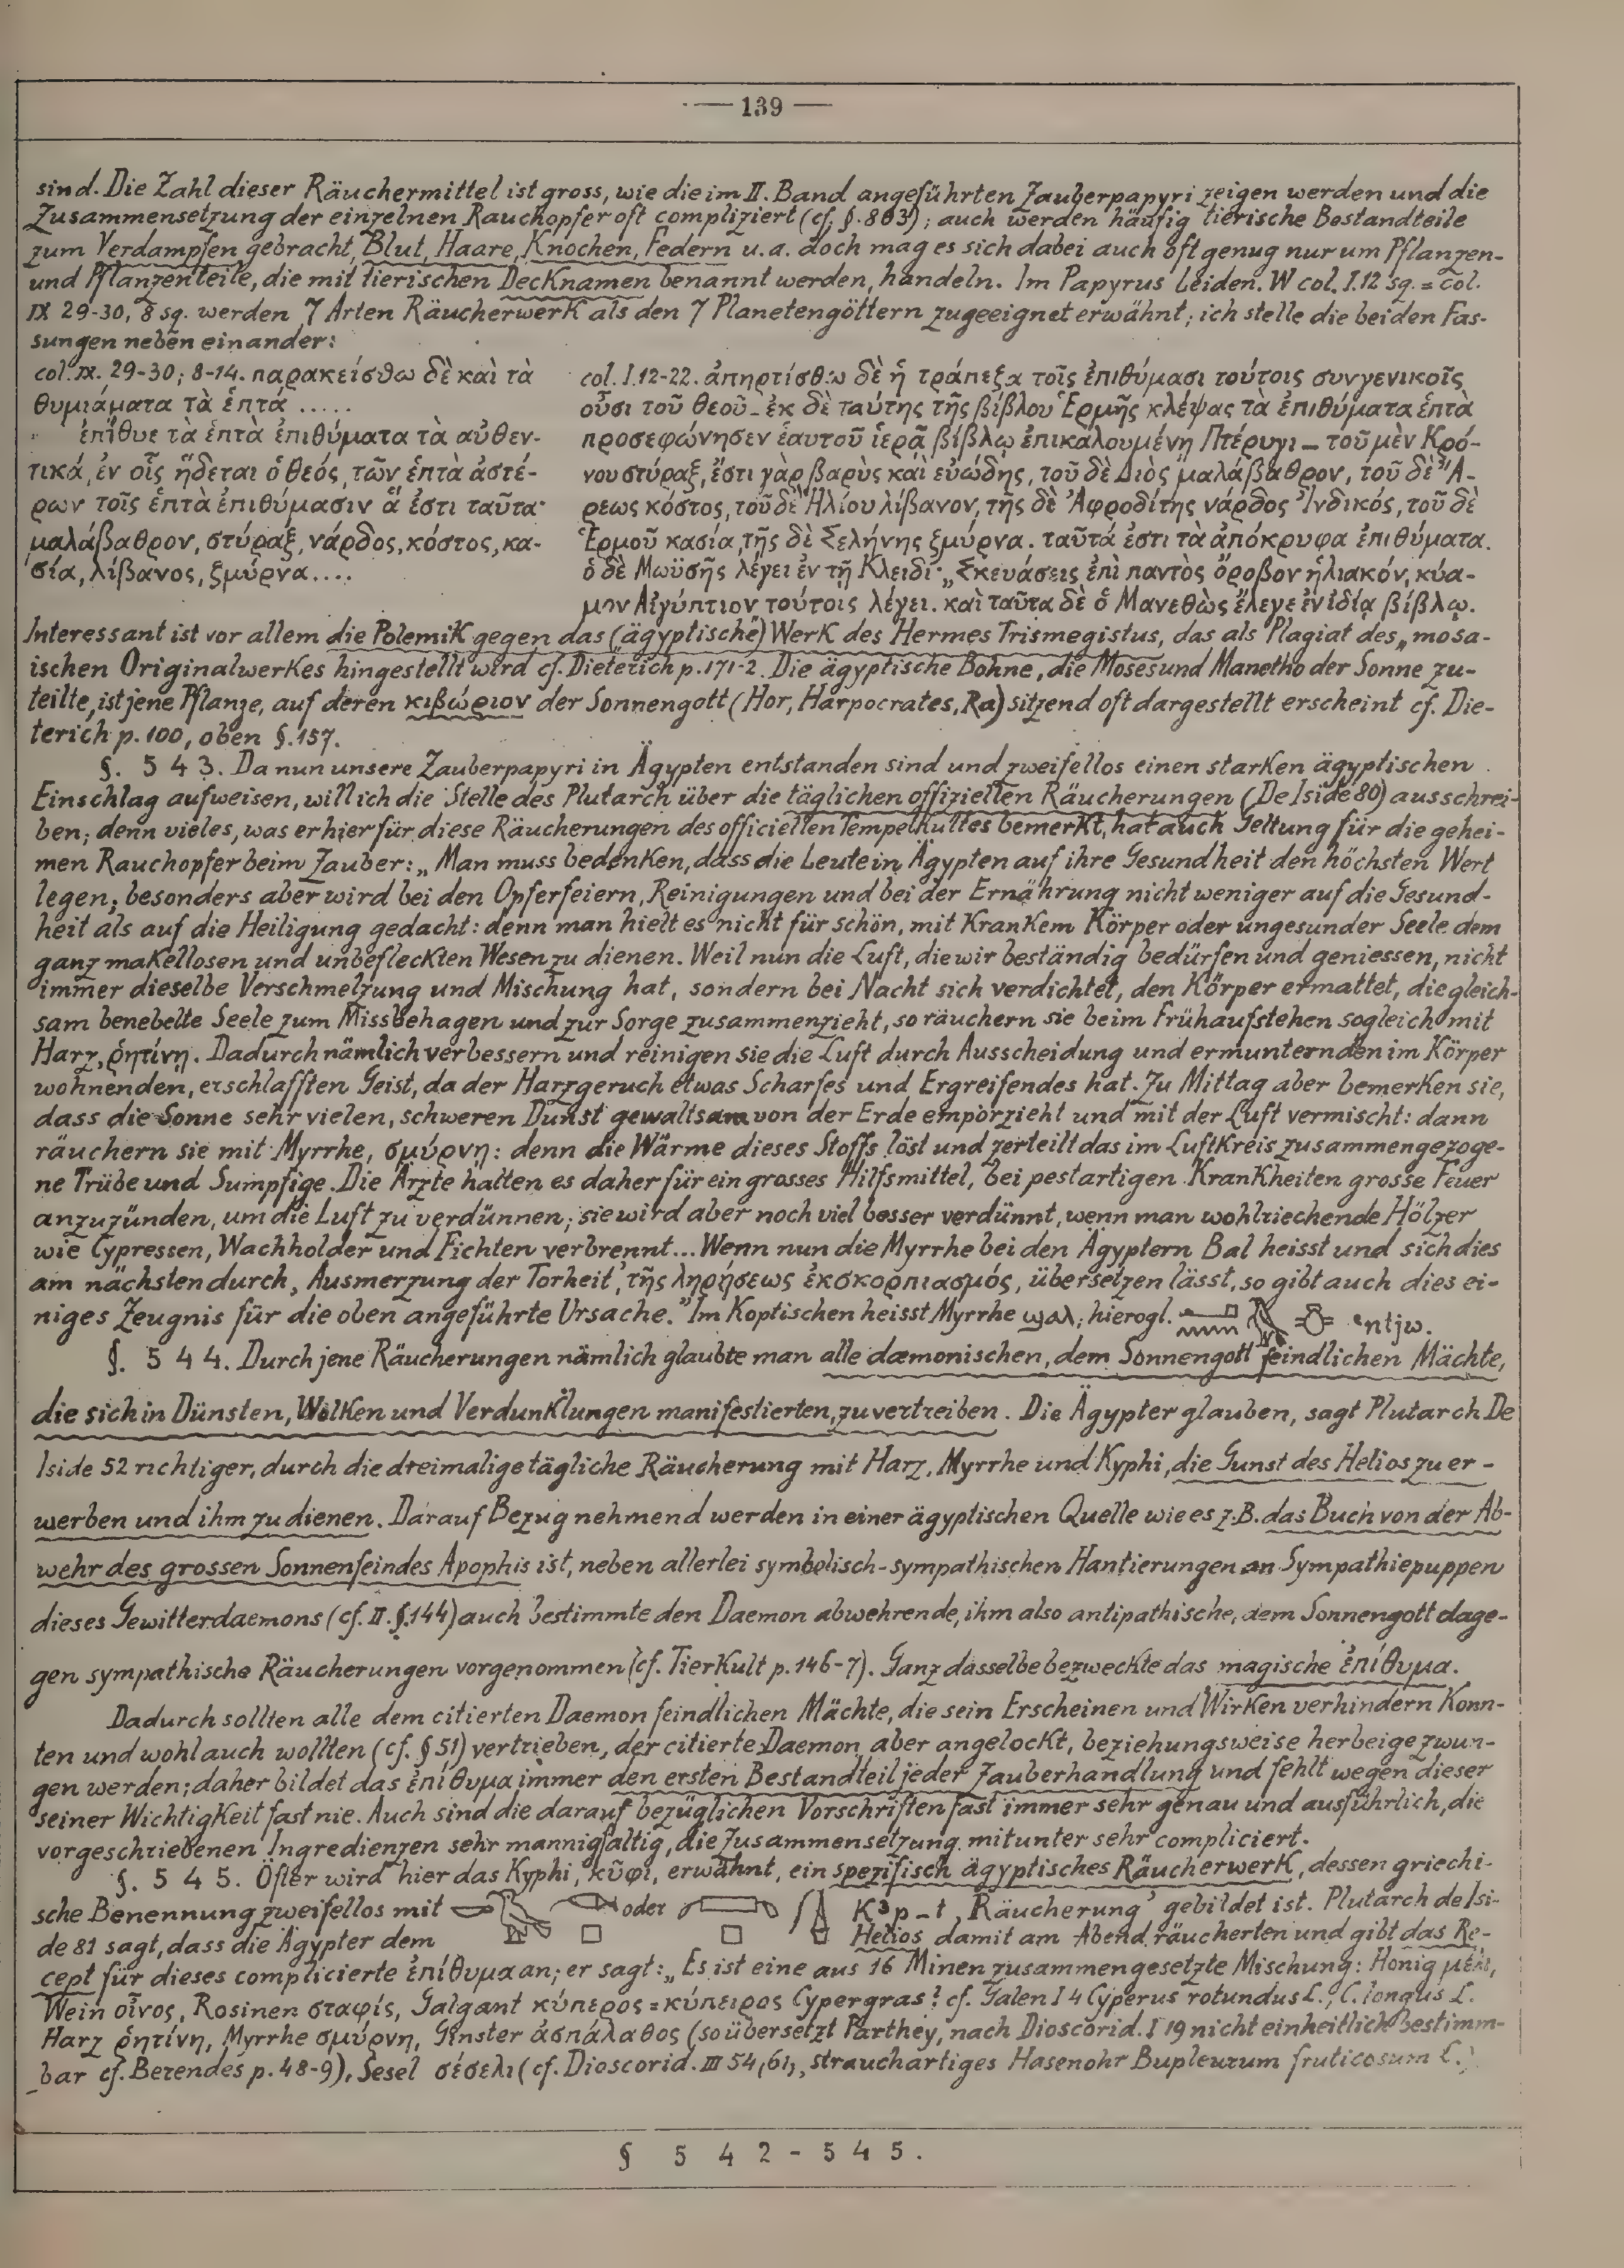 — 139 —
sind. Die Zahl dieser Räuchermittel ist gross, wie die im II. Band angeführten Zauberpapyri zeigen werden und die
Zusammensetzung der einzelnen Rauchopfer oft compliziert (cf. §. 863); auch werden häufig tierische Bestandteile
zum Verdampfen gebracht, Blut, Haare, Knochen, Federn u. a. doch mag es sich dabei auch oft genug nur um Pflanzen-
und Pflanzenteile, die mit tierischen Decknamen benannt werden, handeln. Im Papyrus Leiden. W col. I.12 sg. = col.
IX 29-30, 8 sg. werden 7 Arten Räucherwerk als den 7 Planetengöttern zugeeignet erwähnt; ich stelle die beiden Fas-
sungen neben einander:
col. IX. 29-30; 8-14. παρακείσθω δὲ καὶ τὰ
θυμιάματα τὰ ἑπτά .....
ἐπίθυε τὰ ἑπτὰ ἐπιθύματα τὰ αὐθεν-
τικά, ἐν οἷς ἥδεται ὁ θεός, τῶν ἑπτὰ ἀστέ-
ρων τοῖς ἑπτὰ ἐπιθύμασιν ἅ ἐστι ταῦτα·
μαλάβαθρον, στύραξ, νάρδος, κόστος, κα-
σία, λίβανος, ξμύρνα....
col. I.12-22. ἀπηρτίσθω δὲ ἡ τράπεζα τοῖς ἐπιθύμασι τούτοις συνγενικοῖς
οὖσι τοῦ θεοῦ _ ἐκ δὲ ταύτης τῆς βίβλου Ἑρμῆς κλέψας τὰ ἐπιθύματα ἑπτὰ
προσεφώνησεν ἑαυτοῦ ἱερᾷ βίβλῳ ἐπικαλουμένη Πτέρυγι _ τοῦ μὲν Κρό-
νου στύραξ, ἔστι γὰρ βαρὺς καὶ εὐώδης, τοῦ δὲ Διὸς μαλάβαθρον, τοῦ δὲ Ἄ-
ρεως κόστος, τοῦ δὲ Ἡλίου λίβανον, τῆς δὲ Ἀφροδίτης νάρδος Ἰνδικός, τοῦ δὲ
Ἑρμοῦ κασία, τῆς δὲ Σελήνης ξμύρνα. ταῦτά ἐστι τὰ ἀπόκρυφα ἐπιθύματα.
ὁ δὲ Μωϋσῆς λέγει ἐν τῇ Κλειδί· „Σκευάσεις ἐπὶ παντὸς ὄροβον ἡλιακόν, κύα-
μον Αἰγύπτιον τούτοις λέγει. καὶ ταῦτα δὲ ὁ Μανεθὼς ἔλεγε ἐν ἰδίᾳ βίβλῳ.
Interessant ist vor allem die Polemik gegen das (ägyptische) Werk des Hermes Trismegistus, das als Plagiat des „mosa-
ischen Originalwerkes hingestellt wird cf. Dieterich p. 171-2. Die ägyptische Bohne, die Moses und Manetho der Sonne zu-
teilte, ist jene Pflanze, auf deren κιβώριον der Sonnengott (Hor, Harpocrates, Ra) sitzend oft dargestellt erscheint cf. Die-
terich p. 100, oben §. 157.
§. 543. Da nun unsere Zauberpapyri in Ägypten entstanden sind und zweifellos einen starken ägyptischen
Einschlag aufweisen, will ich die Stelle des Plutarch über die täglichen offiziellen Räucherungen (De Iside 80) ausschrei-
ben; denn vieles, was er hier für diese Räucherungen des officiellen Tempelkultes bemerkt, hat auch Geltung für die gehei-
men Rauchopfer beim Zauber: „Man muss bedenken, dass die Leute in Ägypten auf ihre Gesundheit den höchsten Wert
legen; besonders aber wird bei den Opferfeiern, Reinigungen und bei der Ernährung nicht weniger auf die Gesund-
heit als auf die Heiligung gedacht: denn man hielt es nicht für schön, mit krankem Körper oder ungesunder Seele dem
ganz makellosen und unbefleckten Wesen zu dienen. Weil nun die Luft, die wir beständig bedürfen und geniessen, nicht
immer dieselbe Verschmelzung und Mischung hat, sondern bei Nacht sich verdichtet, den Körper ermattet, die gleich-
sam benebelte Seele zum Missbehagen und zur Sorge zusammenzieht, so räuchern sie beim Frühaufstehen sogleich mit
Harz, ῥητίνῃ. Dadurch nämlich verbessern und reinigen sie die Luft durch Ausscheidung und ermuntern den im Körper
wohnenden, erschlafften Geist, da der Harzgeruch etwas Scharfes und Ergreifendes hat. Zu Mittag aber bemerken sie,
dass die Sonne sehr vielen, schweren Dunst gewaltsam von der Erde emporzieht und mit der Luft vermischt: dann
räuchern sie mit Myrrhe, σμύρνῃ: denn die Wärme dieses Stoffs löst und zerteilt das im Luftkreis zusammengezoge-
ne Trübe und Sumpfige. Die Ärzte halten es daher für ein grosses Hilfsmittel, bei pestartigen Krankheiten grosse Feuer
anzuzünden, um die Luft zu verdünnen; sie wird aber noch viel besser verdünnt, wenn man wohlriechende Hölzer
wie Cypressen, Wachholder und Fichten verbrennt... Wenn nun die Myrrhe bei den Ägyptern Bal heisst und sich dies
am nächsten durch ‚Ausmerzung der Torheit', τῆς ληρήσεως ἐκσκορπιασμός, übersetzen lässt, so gibt auch dies ei-
niges Zeugnis für die oben angeführte Ursache." Im Koptischen heisst Myrrhe ϣαλ; hierogl. ꜥntjw.
§. 544. Durch jene Räucherungen nämlich glaubte man alle daemonischen, dem Sonnengott feindlichen Mächte,
die sich in Dünsten, Wolken und Verdunklungen manifestierten, zu vertreiben. Die Ägypter glauben, sagt Plutarch De
Iside 52 richtiger, durch die dreimalige tägliche Räucherung mit Harz, Myrrhe und Kyphi, die Gunst des Helios zu er-
werben und ihm zu dienen. Darauf Bezug nehmend werden in einer ägyptischen Quelle wie es z.B. das Buch von der Ab-
wehr des grossen Sonnenfeindes Apophis ist, neben allerlei symbolisch-sympathischen Hantierungen an Sympathiepuppen
dieses Gewitterdaemons (cf. II. §. 144) auch bestimmte den Daemon abwehrende, ihm also antipathische, dem Sonnengott dage-
gen sympathische Räucherungen vorgenommen (cf. Tierkult p. 146-7). Ganz dasselbe bezweckte das magische ἐπίθυμα.
Dadurch sollten alle dem citierten Daemon feindlichen Mächte, die sein Erscheinen und Wirken verhindern konn-
ten und wohl auch wollten (cf. § 51) vertrieben, der citierte Daemon aber angelockt, beziehungsweise herbeigezwun-
gen werden; daher bildet das ἐπίθυμα immer den ersten Bestandteil jeder Zauberhandlung und fehlt wegen dieser
seiner Wichtigkeit fast nie. Auch sind die darauf bezüglichen Vorschriften fast immer sehr genau und ausführlich, die
vorgeschriebenen Ingredienzen sehr mannigfaltig, die Zusammensetzung mitunter sehr compliciert.
§. 545. Öfter wird hier das Kyphi, κῦφι, erwähnt, ein spezifisch ägyptisches Räucherwerk, dessen griechi-
sche Benennung zweifellos mit oder Kꜣp_t ‚Räucherung' gebildet ist. Plutarch de Isi-
de 81 sagt, dass die Ägypter dem Helios damit am Abend räucherten und gibt das Re-
cept für dieses complicierte ἐπίθυμα an; er sagt: „Es ist eine aus 16 Minen zusammengesetzte Mischung: Honig μέλι,
Wein οἶνος, Rosinen σταφίς, Galgant κύπερος = κύπειρος Cypergras? cf. Galen I 4 Cyperus rotundus L., C. longus L.
Harz ῥητίνη, Myrrhe σμύρνη, Ginster ἀσπάλαθος (so übersetzt Parthey, nach Dioscorid. I 19 nicht einheitlich bestimm-
bar cf. Berendes p. 48-9), Sesel σέσελι (cf. Dioscorid. III 54, 61, strauchartiges Hasenohr Bupleurum fruticosum L.)
§ 542-545.